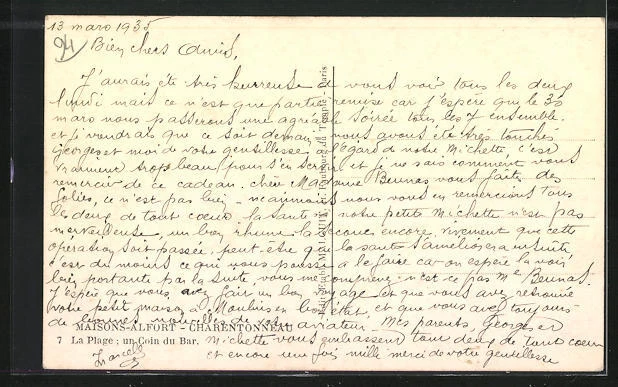 13 mars 1935
94
Bien chers amis,
J'aurais été très heureuse de vous voir tous les deux
lundi mais ce n'est que partie remise car j'espère que le 30
mars nous passerons une agréable soirée tous les 7 ensemble.
et je voudrais que ce soit demain, nous avons été très touchés
Georges et moi de votre gentillesse à l'égard de notre Michette, c'est
vraiment trop beau pour s'en servir et je ne sais comment vous
remercier de ce cadeau. chère Madame Beunas vous faites des
folies, ce n'est pas bien - néanmoins nous vous en remercions tous
les deux de tout coeur, la santé de notre petite Michette n'est pas
merveilleuse, un bon rhume la secoue encore, vivement que cette
opération soit passée, peut-être que la santé s'améliorera ensuite
c'est du moins ce qui nous pousse à le faire car on espère la voir
bien portante par la suite, vous me comprenez n'est ce pas Me Beunas.
J'espère que vous avez fait un bon voyage et que vous avez retrouvé
votre petit maison à Moulins en bon état, et que vous avez toujours
de bonnes nouvelles de votre aviateur. Mes parents, Georges et
MAISONS-ALFORT - CHARENTONNEAU
7 La Plage ; un Coin du Bar. Michette vous embrassent tous deux de tout coeur
Marcelle et encore une fois mille merci de votre gentillesse